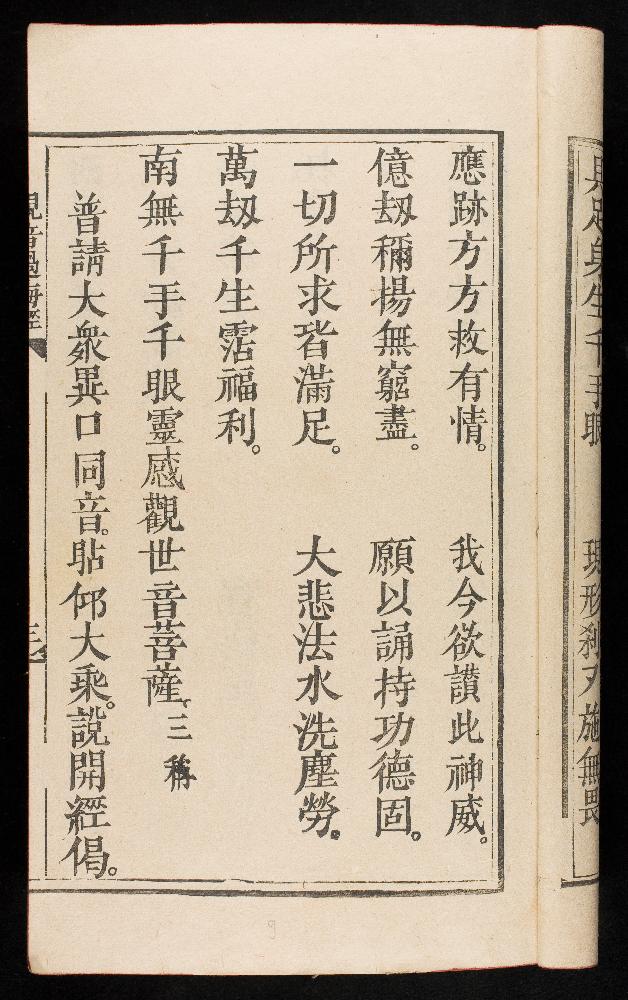 具足身生千手眼 現形剎刄施無畏
應跡方方救有情。 我今欲讃此神威。
億刼稱揚無窮盡。 願以誦持功德固。
一切所求皆滿足。 大悲法水洗塵勞。
萬刼千生霑福利。
南無千手千眼靈感觀世音菩薩、三稱
普請大衆異口同音。瞻仰大乘。説開經偈。
觀音過海經